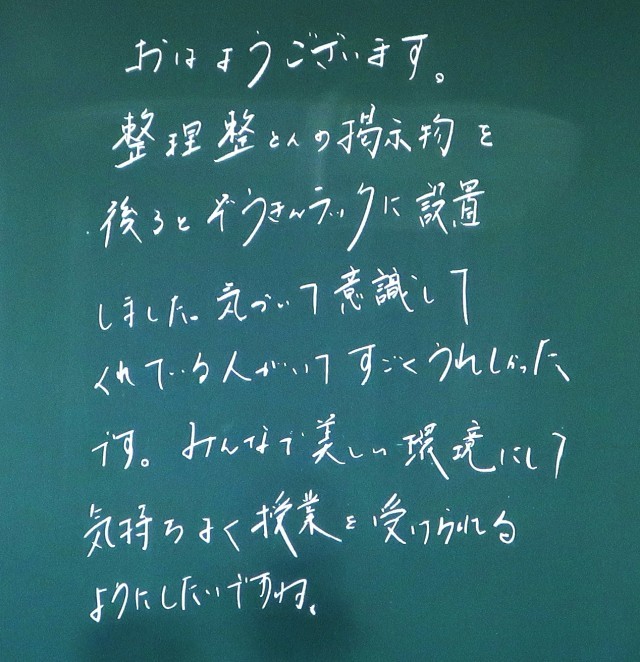 おはようございます。
整理整とんの掲示物を
後ろとぞうきんラックに設置
しました。気づいて意識して
くれている人がいてすごくうれしかった
です。みんなで美しい環境にして
気持ちよく授業を受けられる
ようにしたいですね。